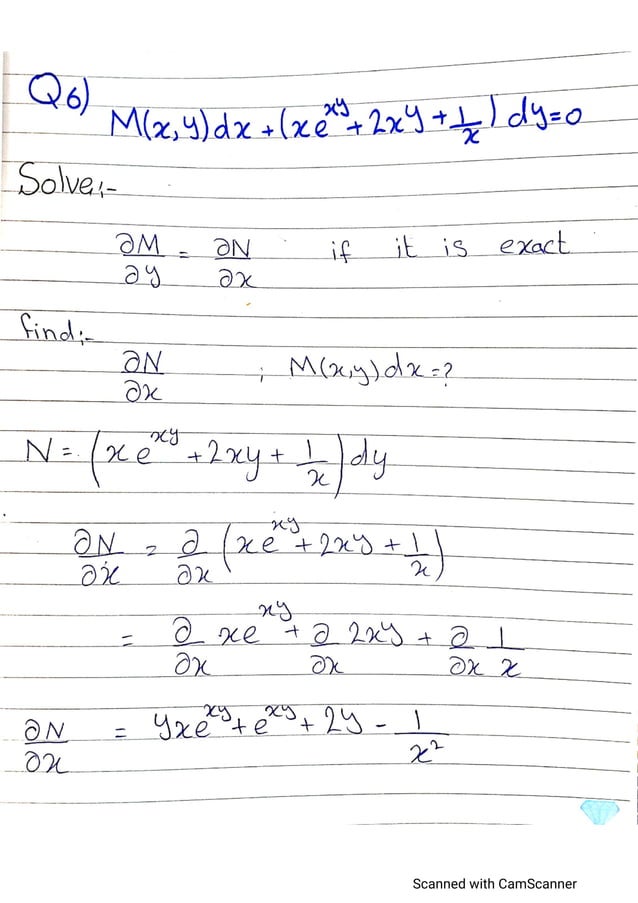 Q6)
M(x,y)dx + (xe^{xy} + 2xy + \frac{1}{x}) dy = 0
Solve:-
\frac{∂M}{∂y} = \frac{∂N}{∂x} if it is exact
find:-
\frac{∂N}{∂x} ; M(x,y)dx = ?
N = (xe^{xy} + 2xy + \frac{1}{x}) dy
\frac{∂N}{∂x} = \frac{∂}{∂x} (xe^{xy} + 2xy + \frac{1}{x})
= \frac{∂}{∂x} xe^{xy} + \frac{∂}{∂x} 2xy + \frac{∂}{∂x} \frac{1}{x}
\frac{∂N}{∂x} = yxe^{xy} + e^{xy} + 2y - \frac{1}{x^2}
Scanned with CamScanner